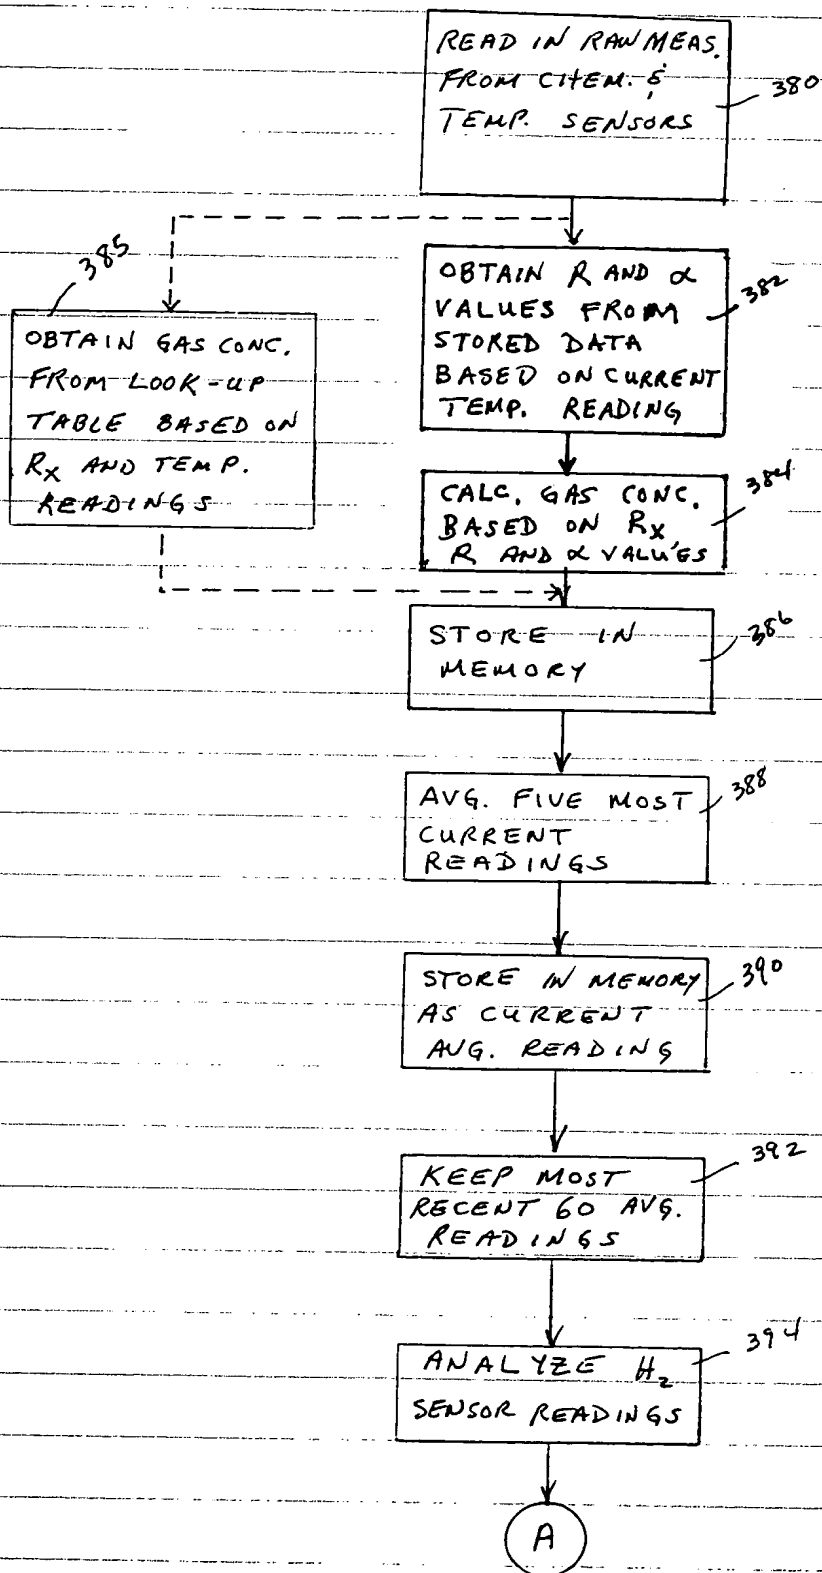 READ IN RAW MEAS.
FROM CHEM. &
TEMP. SENSORS
380
385
OBTAIN GAS CONC.
FROM LOOK-UP
TABLE BASED ON
Rx AND TEMP.
READINGS
OBTAIN R AND α
VALUES FROM
STORED DATA
BASED ON CURRENT
TEMP. READING
382
CALC. GAS CONC.
BASED ON Rx
R AND α VALUES
384
STORE IN
MEMORY
386
AVG. FIVE MOST
CURRENT
READINGS
388
STORE IN MEMORY
AS CURRENT
AVG. READING
390
KEEP MOST
RECENT 60 AVG.
READINGS
392
ANALYZE H₂
SENSOR READINGS
394
A